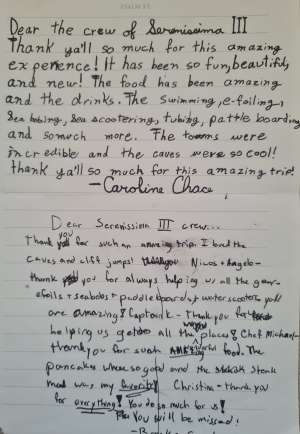 Dear the crew of Serenissima III
Thank ya'll so much for this amazing
experience! It has been so fun, beautiful,
and new! The food has been amazing
and the drinks. The swimming, e-foiling,
Sea bobing, Sea scootering, tubing, pattle boarding
and somuch more. The towns were
incredible and the caves were so cool!
thank ya'll so much for this amazing trip!
-Caroline Chace
Dear Serenissima III crew...
Thank you for such an amazing trip. I loved the
caves and clift jumps! Nicos + Angelo-
thank you for always helping us all the gear-
efoils + seabobs + puddleboards + waterscooters you
are amazing! Captain k - Thank you for
helping us get to all the places! Chef Michael-
thank you for such wonderful food. The
pancakes where so good and the steak
meal was my favorite! Christin - thank you
for everything! You do so much for us!
You will be missed!